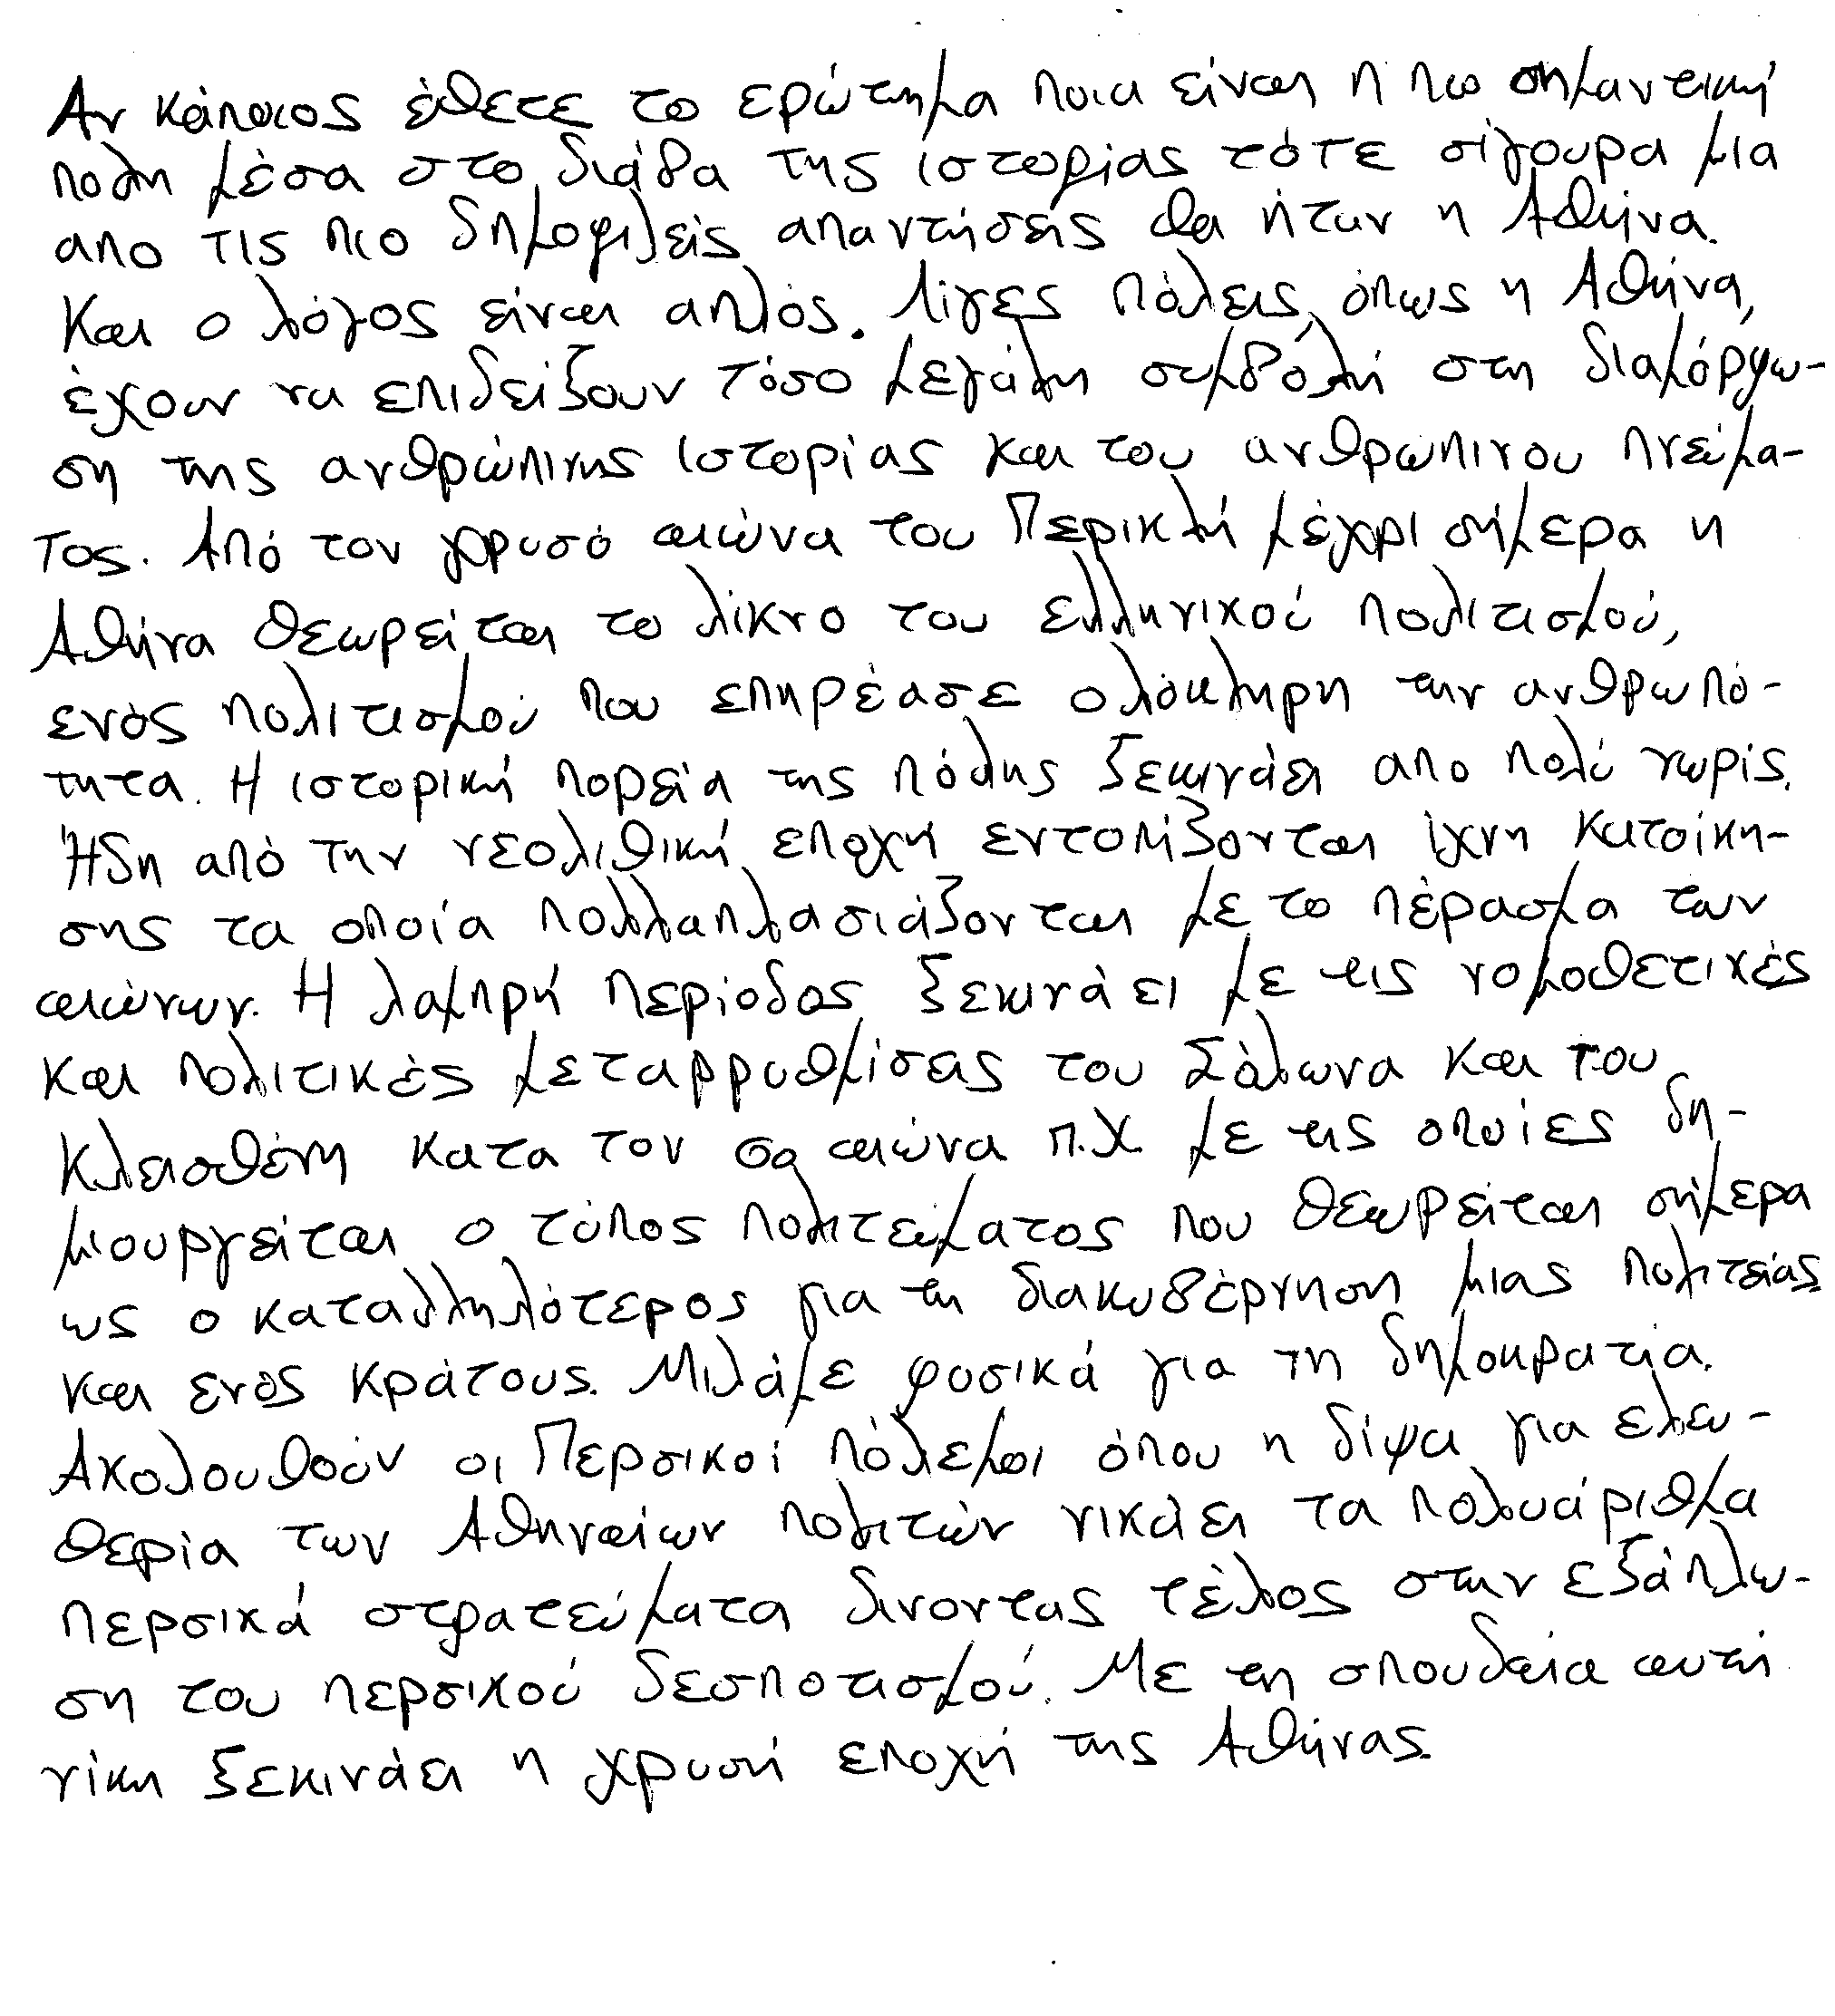 Αν κάποιος έθετε το ερώτημα ποια είναι η πιο σημαντική
πολη μέσα στο διάβα της ιστορίας τότε σίγουρα μια
απο τις πιο δημοφιλείς απαντήσεις θα ήταν η Αθήνα.
Και ο λόγος είναι απλός. Λίγες πόλεις, όπως η Αθήνα,
έχουν να επιδείξουν τόσο μεγάλη συμβολή στη διαμόρφω-
ση της ανθρώπινης ιστορίας και του ανθρώπινου πνεύμα-
τος. Από τον χρυσό αιώνα του Περικλή μέχρι σήμερα η
Αθήνα θεωρείται το λίκνο του ελληνικού πολιτισμού,
ενός πολιτισμού που επηρέασε ολόκληρη την ανθρωπό-
τητα. Η ιστορική πορεία της πόλης ξεκινάει απο πολύ νωρίς.
Ήδη από την νεολιθική εποχή εντοπίζονται ίχνη κατοίκη-
σης τα οποία πολλαπλασιάζονται με το πέρασμα των
αιώνων. Η λαμπρή περίοδος ξεκινάει με τις νομοθετικές
και πολιτικές μεταρρυθμίσεις του Σόλωνα και του
Κλεισθένη κατα τον 6ο αιώνα π.Χ. με τις οποίες δη-
μιουργείται ο τύπος πολιτεύματος που θεωρείται σήμερα
ως ο καταλληλότερος για τη διακυβέρνηση μιας πολιτείας
και ενός κράτους. Μιλάμε φυσικά για τη δημοκρατία.
Ακολουθούν οι Περσικοί πόλεμοι όπου η δίψα για ελευ-
θερία των Αθηναίων πολιτών νικάει τα πολυάριθμα
περσικά στρατεύματα δινοντας τέλος στην εξάπλω-
ση του περσικού δεσποτισμού. Με τη σπουδαία αυτή
νίκη ξεκινάει η χρυσή εποχή της Αθήνας.